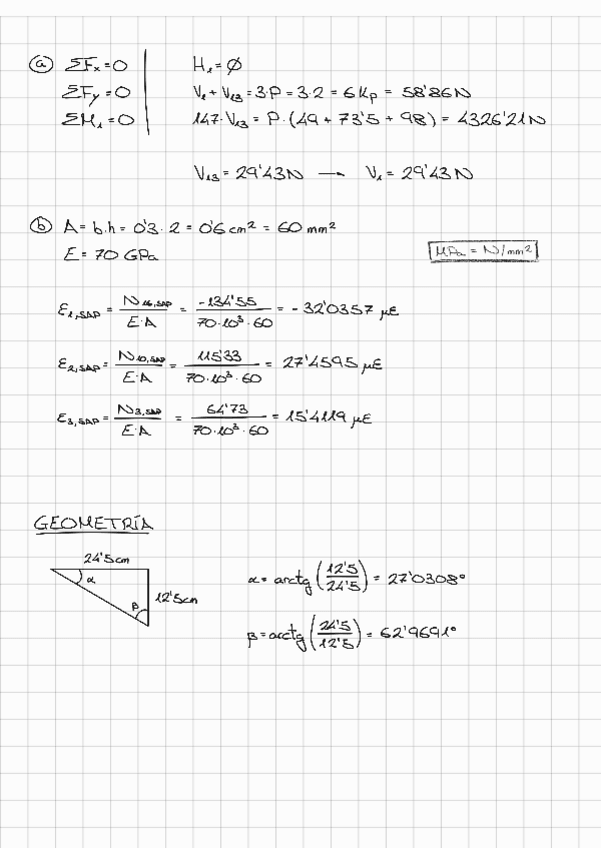 (a) ΣFx = 0 H1 = Ø
ΣFy = 0 V1 + V13 = 3·P = 3·2 = 6Kp = 58'86N
ΣM1 = 0 147·V13 = P·(49 + 73'5 + 98) = 4326'21N
V13 = 29'43N → V1 = 29'43N
(b) A = b·h = 0'3·2 = 0'6 cm² = 60 mm²
E = 70 GPa MPa = N/mm²
ε1,SAP = N16,SAP / E·A = -134'55 / 70·10³·60 = -32'0357 με
ε2,SAP = N10,SAP / E·A = 115'33 / 70·10³·60 = 27'4595 με
ε3,SAP = N3,SAP / E·A = 64'73 / 70·10³·60 = 15'4119 με
GEOMETRÍA
24'5cm
α
β
12'5cm
α = arctg (12'5 / 24'5) = 27'0308°
β = arctg (24'5 / 12'5) = 62'9691°